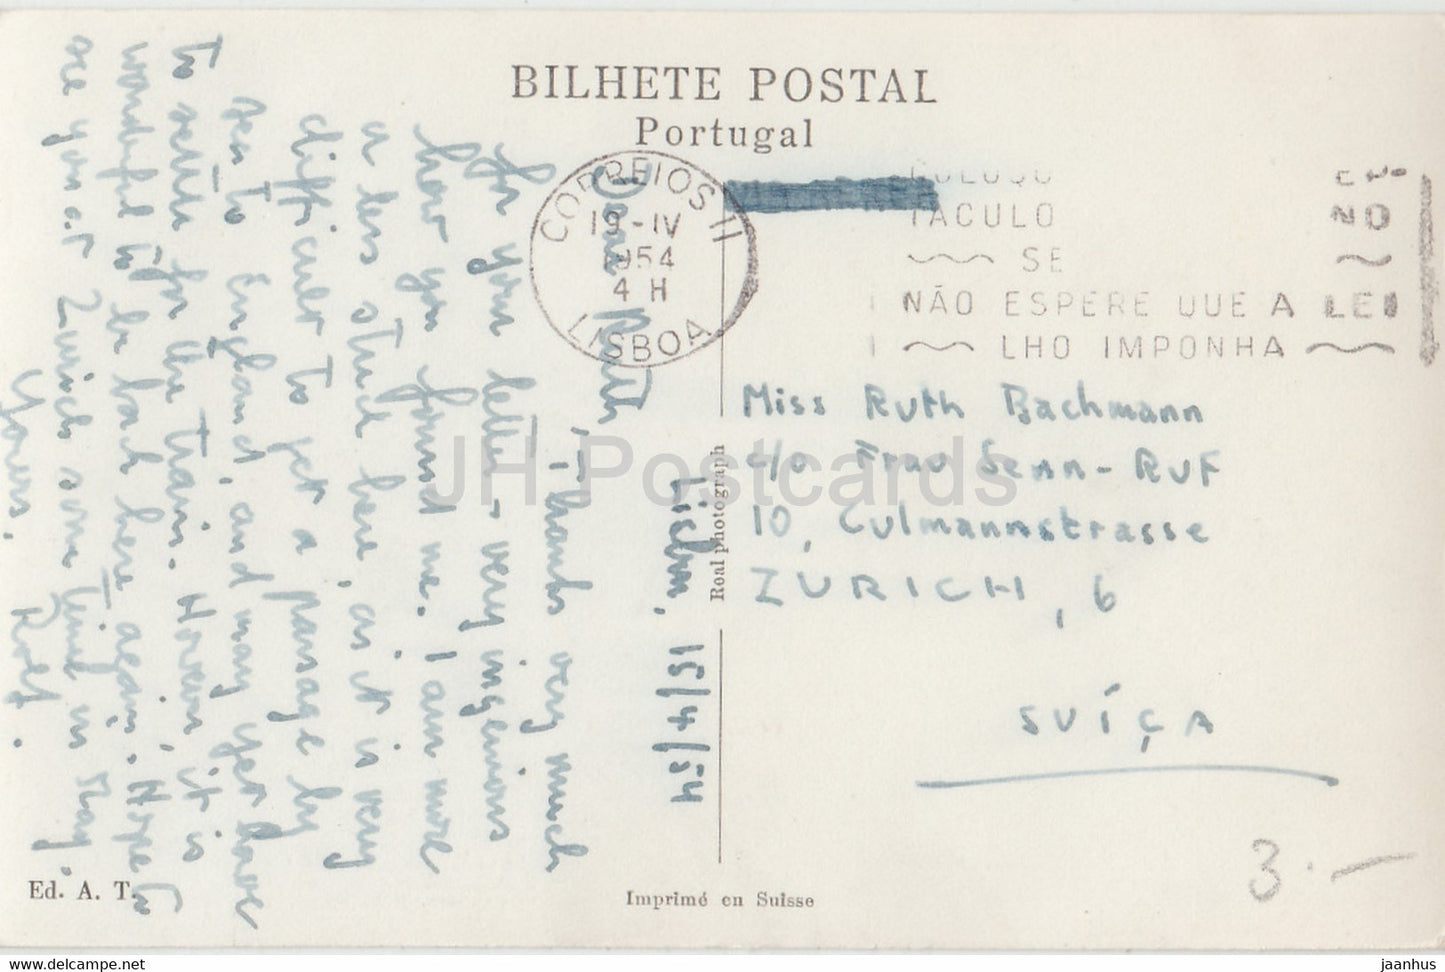 BILHETE POSTAL
Portugal
CORREIOS II
19-IV
1954
4 H
LISBOA
TACULO
NO
SE
NÃO ESPERE QUE A LEI
LHO IMPONHA
Lisbon, 15/4/54
Dear Ruth, Thanks very much
for your letter - very ingenious
how you found me. I am more
or less stuck here, as it is very
difficult to get a passage by
sea to England, and may yet have
to settle for the train. However, it is
wonderful to be back here again. Hope to
see you at Zurich some time in May.
Yours,
Rolf.
Miss Ruth Bachmann
c/o Frau Senn-Ruf
10, Culmannstrasse
ZURICH, 6
SUÍÇA
3.-
Real photograph
Ed. A. T.
Imprimé en Suisse
JH Postcards
www.delcampe.net
jaanhus